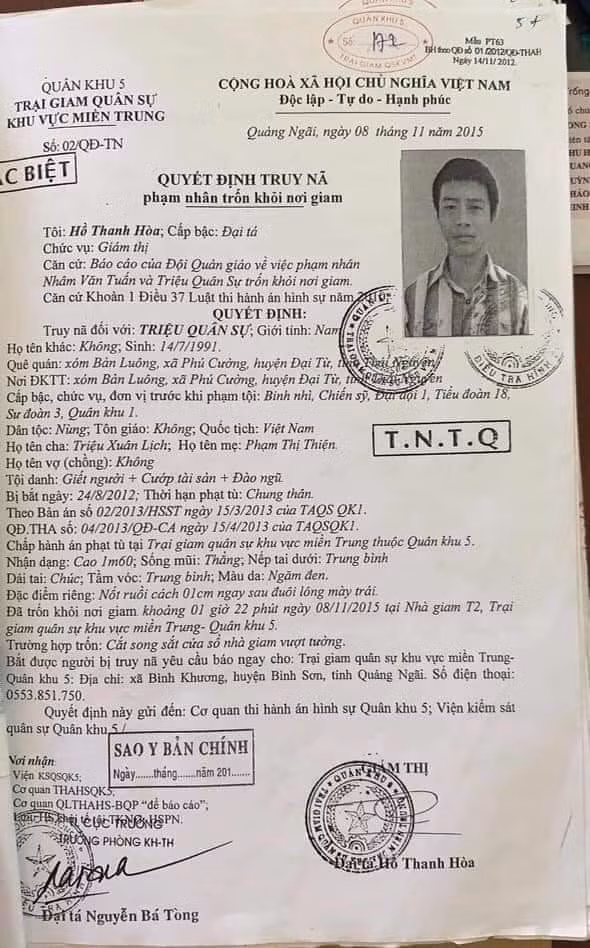 QUÂN KHU 5
Số: 172
TRẠI GIAM QSKVMT
5+
Mẫu PT63
BH theo QĐ số 01/2012/QĐ-THAH
Ngày 14/11/2012.
QUÂN KHU 5
TRẠI GIAM QUÂN SỰ
KHU VỰC MIỀN TRUNG
Số: 02/QĐ-TN
CỘNG HOÀ XÃ HỘI CHỦ NGHĨA VIỆT NAM
Độc lập - Tự do - Hạnh phúc
Quảng Ngãi, ngày 08 tháng 11 năm 2015
ẶC BIỆT
QUYẾT ĐỊNH TRUY NÃ
phạm nhân trốn khỏi nơi giam
Tôi: Hồ Thanh Hòa; Cấp bậc: Đại tá
Chức vụ: Giám thị
Căn cứ: Báo cáo của Đội Quản giáo về việc phạm nhân
Nhâm Văn Tuấn và Triệu Quân Sự trốn khỏi nơi giam.
Căn cứ Khoản 1 Điều 37 Luật thi hành án hình sự năm
QUYẾT ĐỊNH:
Truy nã đối với: TRIỆU QUÂN SỰ; Giới tính: Nam
Họ tên khác: Không; Sinh: 14/7/1991.
Quê quán: xóm Bản Luông, xã Phú Cường, huyện Đại Từ, tỉnh Thái Nguyên
Nơi ĐKTT: xóm Bản Luông, xã Phú Cường, huyện Đại Từ, tỉnh Thái Nguyên
Cấp bậc, chức vụ, đơn vị trước khi phạm tội: Binh nhì, Chiến sỹ, Đại đội 1, Tiểu đoàn 18,
Sư đoàn 3, Quân khu 1.
Dân tộc: Nùng; Tôn giáo: Không; Quốc tịch: Việt Nam
Họ tên cha: Triệu Xuân Lịch; Họ tên mẹ: Phạm Thị Thiện.
T.N.T.Q
Họ tên vợ (chồng): Không
Tội danh: Giết người + Cướp tài sản + Đào ngũ.
Bị bắt ngày: 24/8/2012; Thời hạn phạt tù: Chung thân.
Theo Bản án số 02/2013/HSST ngày 15/3/2013 của TAQS QK1.
QĐ.THA số: 04/2013/QĐ-CA ngày 15/4/2013 của TAQSQK1.
Chấp hành án phạt tù tại Trại giam quân sự khu vực miền Trung thuộc Quân khu 5.
Nhận dạng: Cao 1m60; Sống mũi: Thẳng; Nếp tai dưới: Trung bình
Dái tai: Chúc; Tầm vóc: Trung bình; Màu da: Ngăm đen.
Đặc điểm riêng: Nốt ruồi cách 01cm ngay sau đuôi lông mày trái.
Đã trốn khỏi nơi giam khoảng 01 giờ 22 phút ngày 08/11/2015 tại Nhà giam T2, Trại
giam quân sự khu vực miền Trung- Quân khu 5.
Trường hợp trốn: Cắt song sắt cửa sổ nhà giam vượt tường.
Bắt được người bị truy nã yêu cầu báo ngay cho: Trại giam quân sự khu vực miền Trung-
Quân khu 5: Địa chỉ: xã Bình Khương, huyện Bình Sơn, tỉnh Quảng Ngãi. Số điện thoại:
0553.851.750.
Quyết định này gửi đến: Cơ quan thi hành án hình sự Quân khu 5; Viện kiểm sát
quân sự Quân khu 5./
SAO Y BẢN CHÍNH
Ngày.......tháng.......năm 201.......
Nơi nhận:
Viện KSQSQK5;
Cơ quan THAHSQK5;
Cơ quan QLTHAHS-BQP “để báo cáo”;
TL CỤC TRƯỞNG
TRƯỞNG PHÒNG KH-TH
Đại tá Nguyễn Bá Tòng
GIÁM THỊ
Đại tá Hồ Thanh Hòa